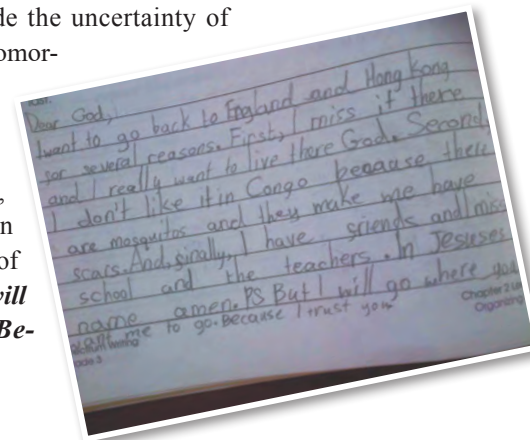 de the uncertainty of
omor-
,
n
of
will
Be-
Dear God,
I want to go back to England and Hong Kong
for several reasons. First, I miss it there
and I really want to live there God. Second
I don't like it in Congo because there
are mosquitos and they make me have
scars. And, finally, I have friends and miss
school and the teachers. In Jesuses
name amen. PS But I will go where you
want me to go. Because I trust you
Chapter 2
Organizin